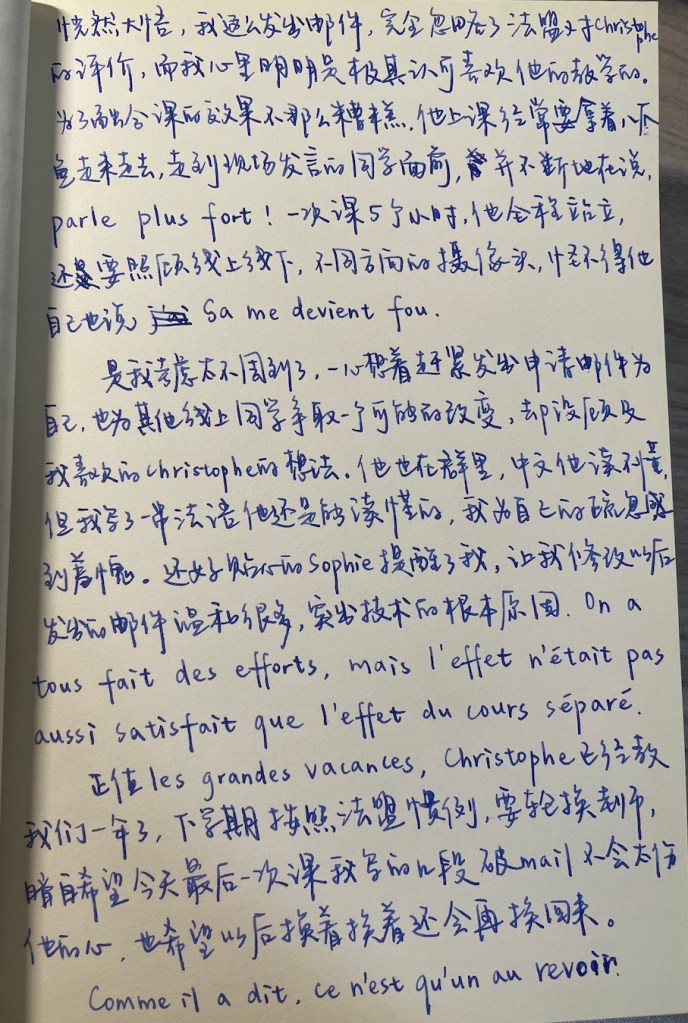 恍然大悟，我这么发出邮件，完全忽略了法盟对Christophe
的评价，而我心里明明是极其认可喜欢他的教学的。
为了面出合课的效果不那么糟糕，他上课经常要拿着小木
鱼走来走去，走到现场发言的同学面前，并不断地在说，
parle plus fort！一次课5个小时，他全程站立，
还要照顾线上线下，不同方向的摄像头，怪不得他
自己也说，Sa me devient fou.
是我考虑太不周到了，一心想着赶紧发出申请邮件为
自己，也为其他线上同学争取一个可能的改变，却没顾及
我喜欢的Christophe的想法。他也在群里，中文他读不懂，
但我写了一串法语他还是能读懂的，我为自己的疏忽感
到羞愧。还好贴心的Sophie提醒了我，让我修改以后
发出的邮件温和很多，突出技术的根本原因。On a
tous fait des efforts, mais l'effet n'était pas
aussi satisfait que l'effet du cours séparé.
正值les grandes vacances, Christophe已经教
我们一年了，下学期按照法盟惯例，要轮换老师，
暗自希望今天最后一次课我写的几段破mail不会太伤
他的心，也希望以后换着换着还会再换回来。
Comme il a dit, ce n'est qu'un au revoir.